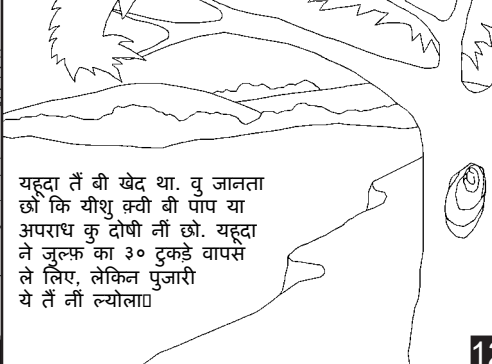 यहूदा तैं बी खेद था. वु जानता
छो कि यीशु क़्वी बी पाप या
अपराध कु दोषी नीं छो. यहूदा
ने जुल्फ़ का ३० टुकड़े वापस
ले लिए, लेकिन पुजारी
ये तैं नीं ल्योला▯